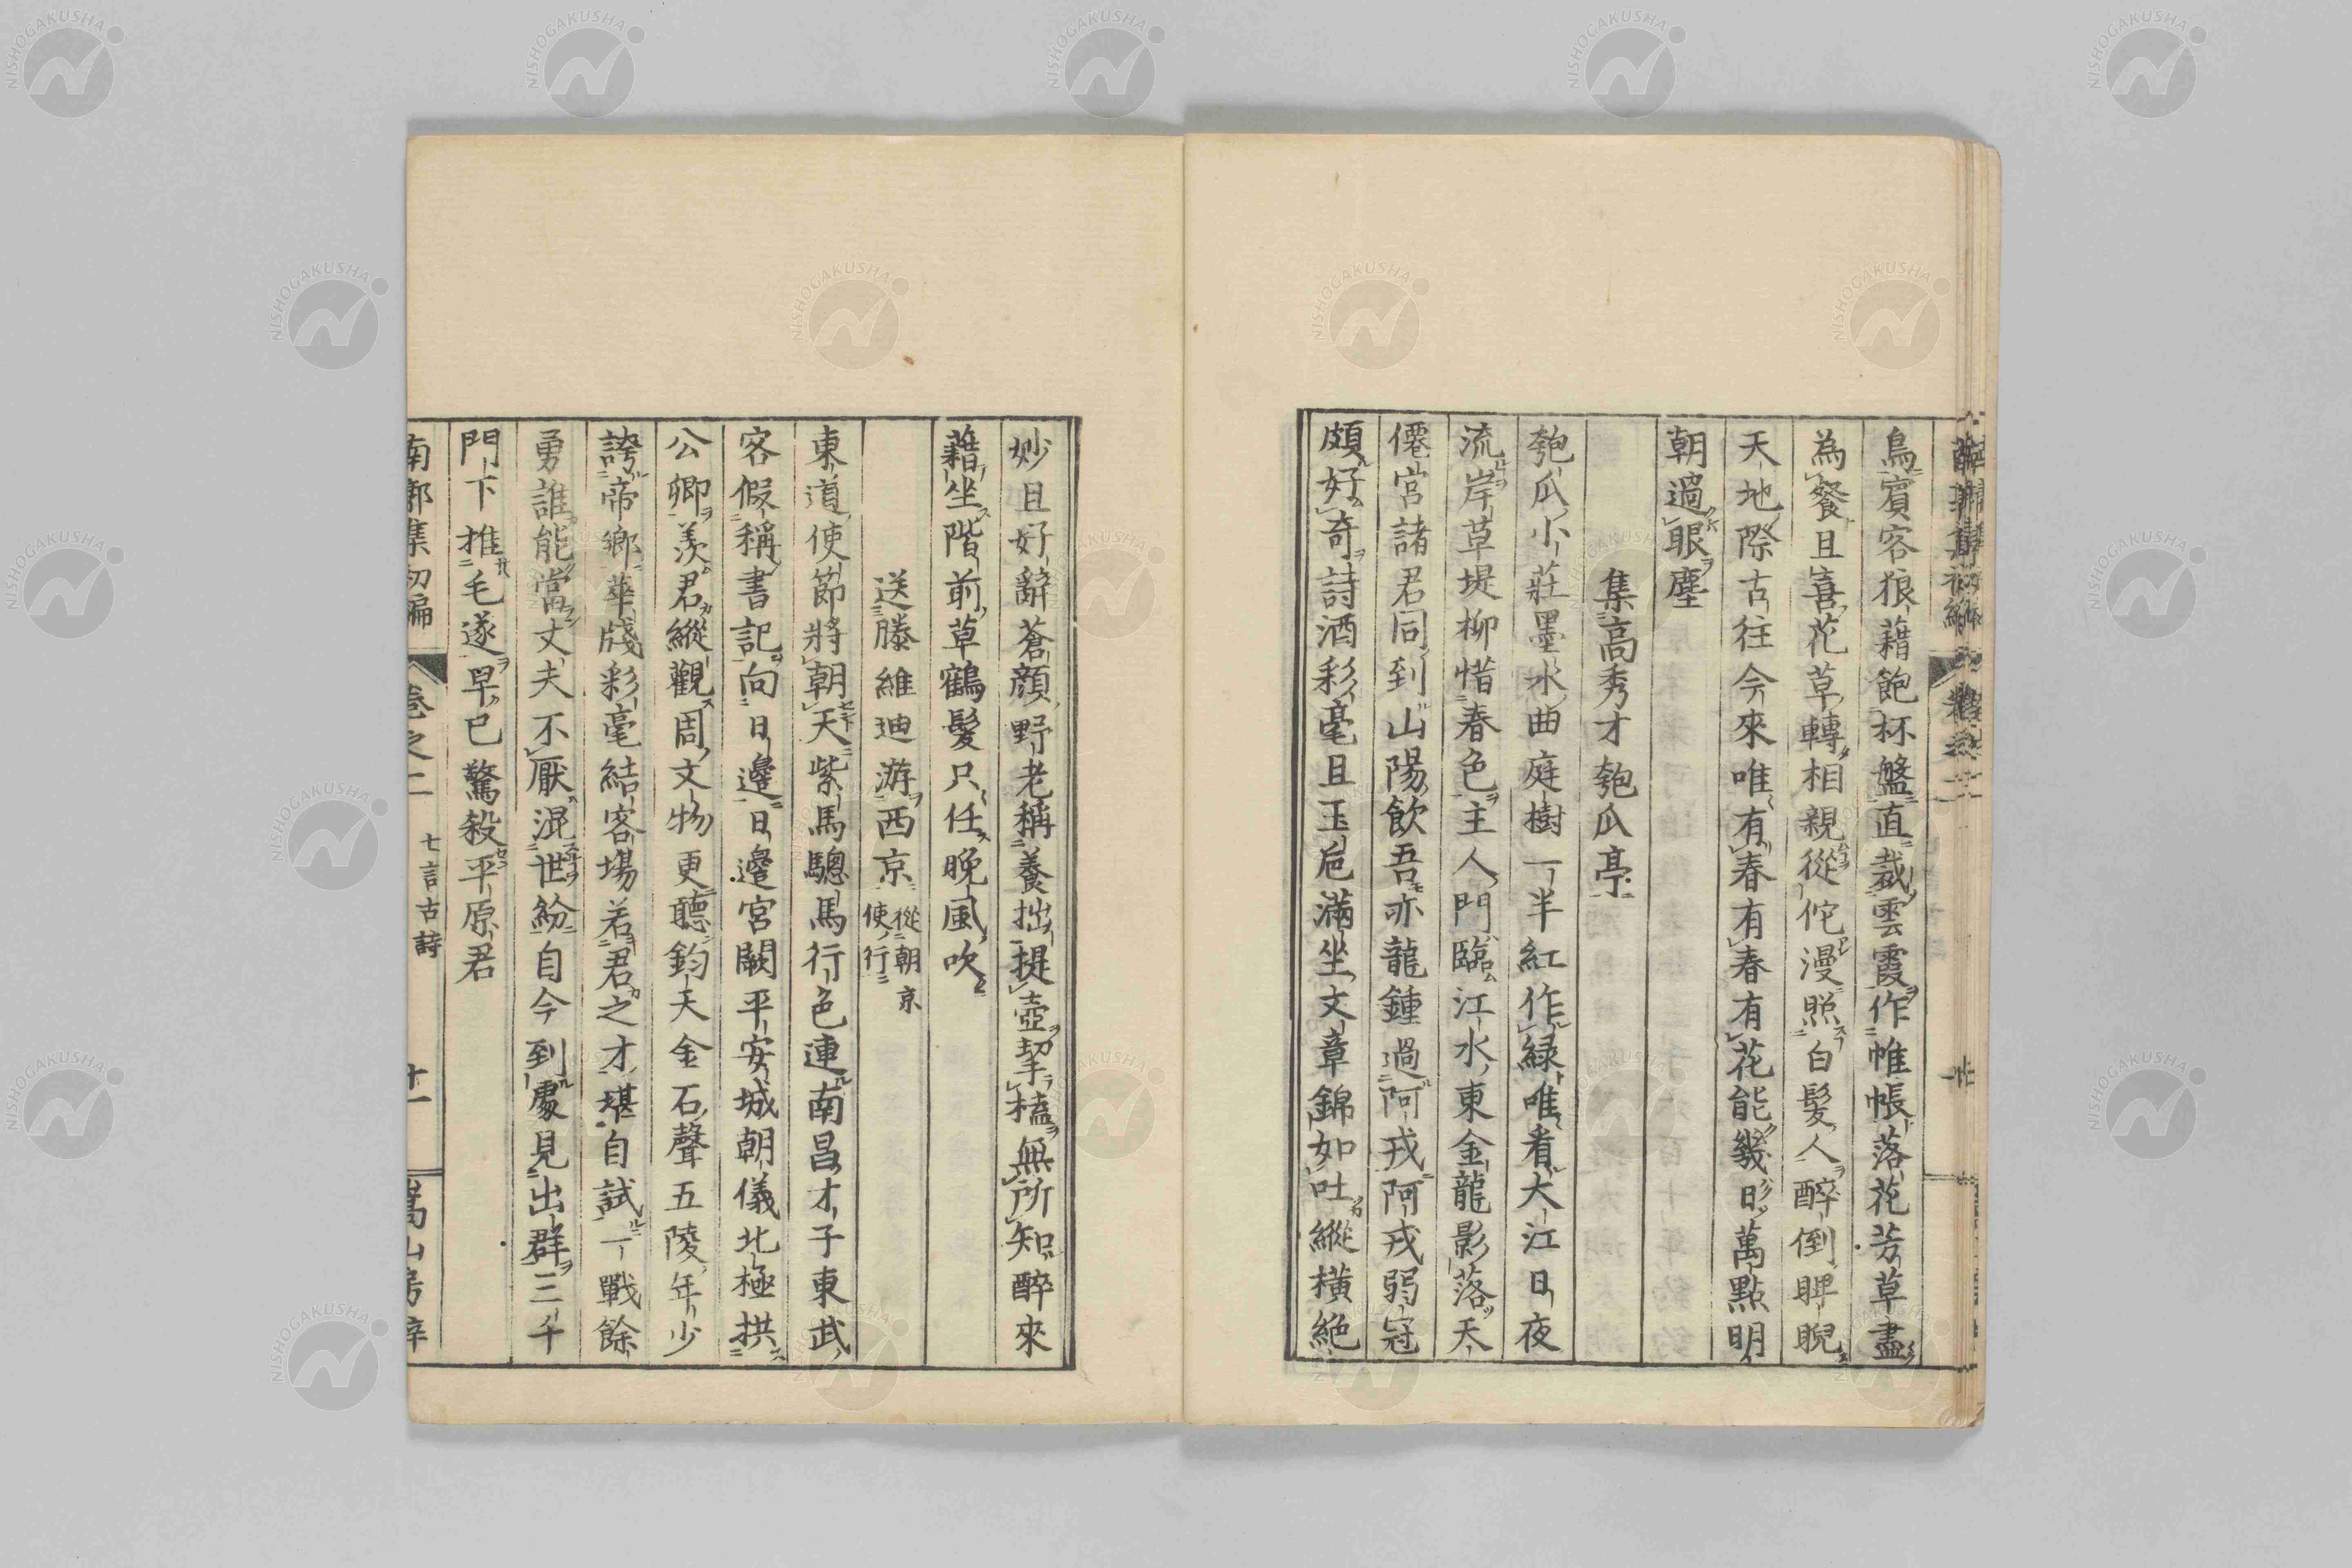 鳥賓客狼藉飽杯盤直裁雲霞作帷帳落花芳草盡
為餐且喜花草轉相親從佗漫照白髮人醉倒睥睨
天地際古往今來唯有春有春有花能幾日萬點明
朝過眼塵
集高秀才匏瓜亭
匏瓜小莊墨水曲庭樹一半紅作綠唯看大江日夜
流岸草堤柳惜春色主人門臨江水東金龍影落天
僊宮諸君同到山陽飲吾亦龍鍾過阿戎阿戎弱冠
頗好奇詩酒彩毫且玉巵滿坐文章錦如吐縱橫絕
妙且好辭蒼顏野老稱養拙提壺挈榼無所知醉來
藉坐階前草鶴髮只任晚風吹
送滕維迪游西京 從朝京使行
東道使節將朝天紫馬驄馬行色連南昌才子東武
客假稱書記向日邊日邊宮闕平安城朝儀北極拱
公卿羨君縱觀周文物更聽鈞天金石聲五陵年少
誇帝鄉華牋彩毫結客場若君之才堪自試一戰餘
勇誰能當丈夫不厭混世紛自今到處見出群三千
門下推毛遂早已驚殺平原君
南郭集初編 卷之二 七言古詩 十一 嵩山房梓